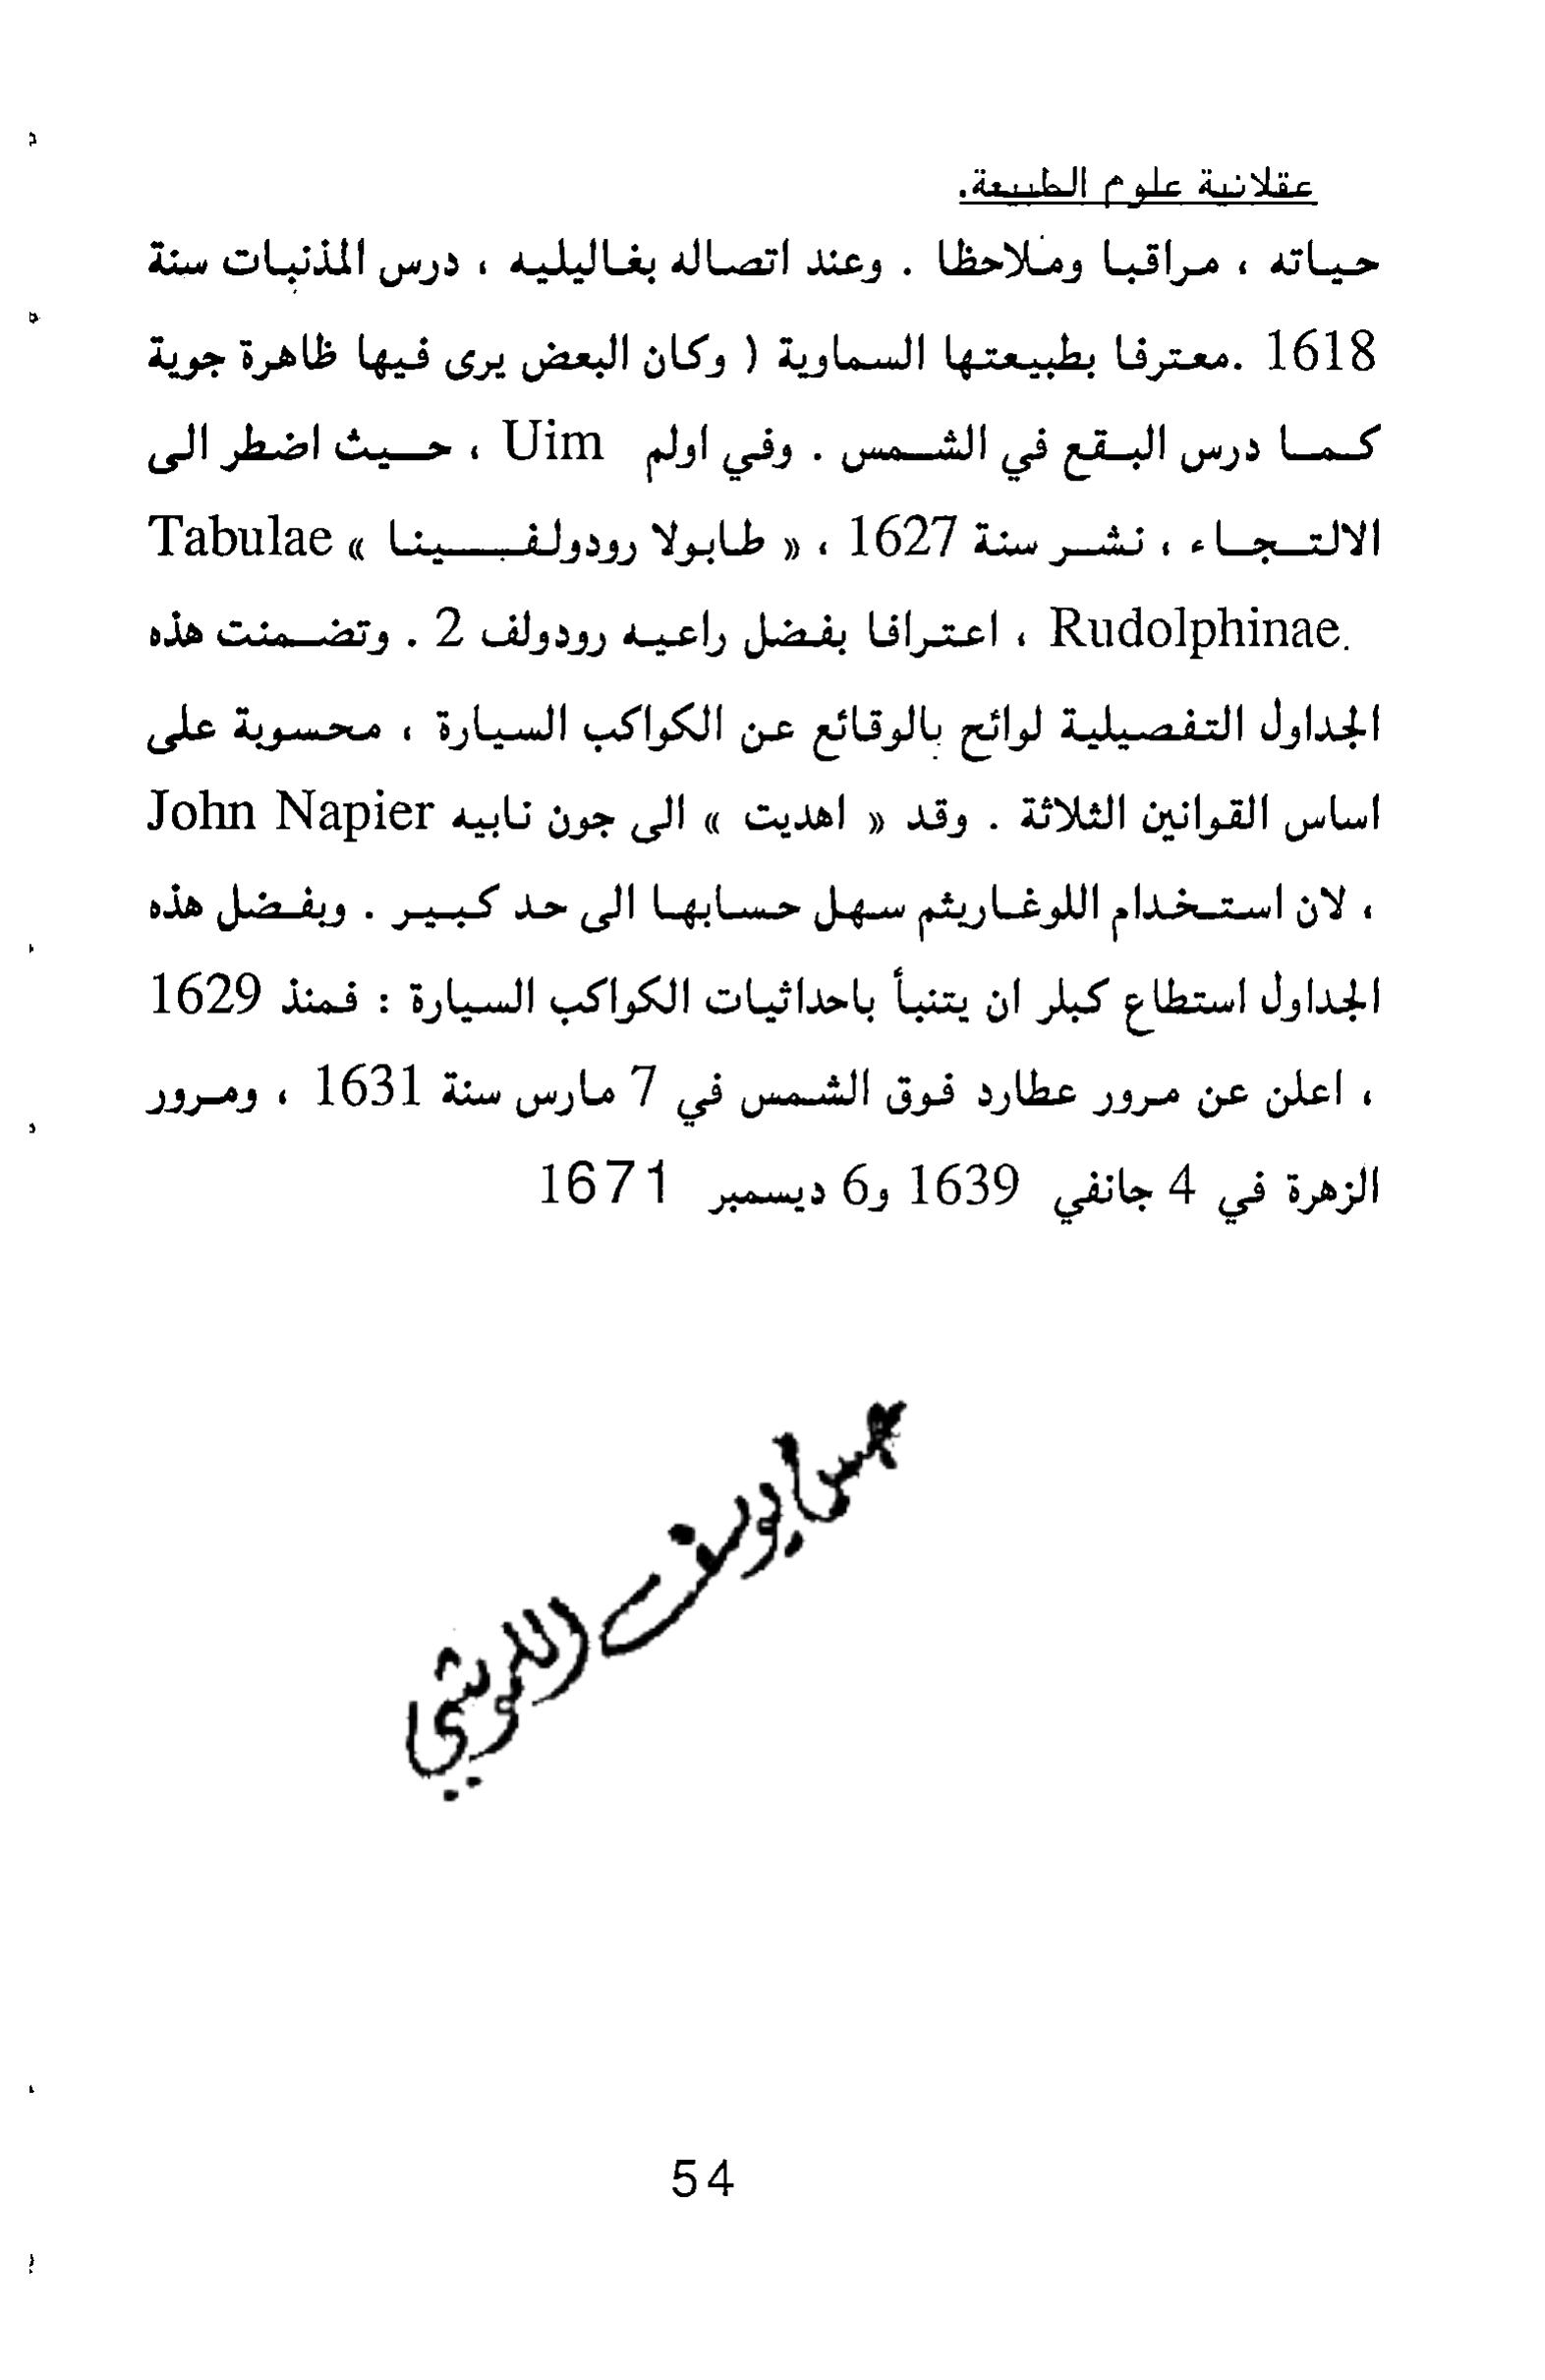 عقلانية علوم الطبيعة.
حياته ، مراقبا وملاحظا . وعند اتصاله بغاليليه ، درس المذنبات سنة
1618 .معترفا بطبيعتها السماوية ( وكان البعض يرى فيها ظاهرة جوية
كما درس البقع في الشمس . وفي اولم Uim ، حيث اضطر الى
الالتجاء ، نشر سنة 1627 ، « طابولا رودولفينا » Tabulae
Rudolphinae. ، اعترافا بفضل راعيه رودولف 2 . وتضمنت هذه
الجداول التفصيلية لوائح بالوقائع عن الكواكب السيارة ، محسوبة على
اساس القوانين الثلاثة . وقد « اهديت » الى جون نابيه John Napier
، لان استخدام اللوغاريثم سهل حسابها الى حد كبير . وبفضل هذه
الجداول استطاع كبلر ان يتنبأ باحداثيات الكواكب السيارة : فمنذ 1629
، اعلن عن مرور عطارد فوق الشمس في 7 مارس سنة 1631 ، ومرور
الزهرة في 4 جانفي 1639 و6 ديسمبر 1671
54